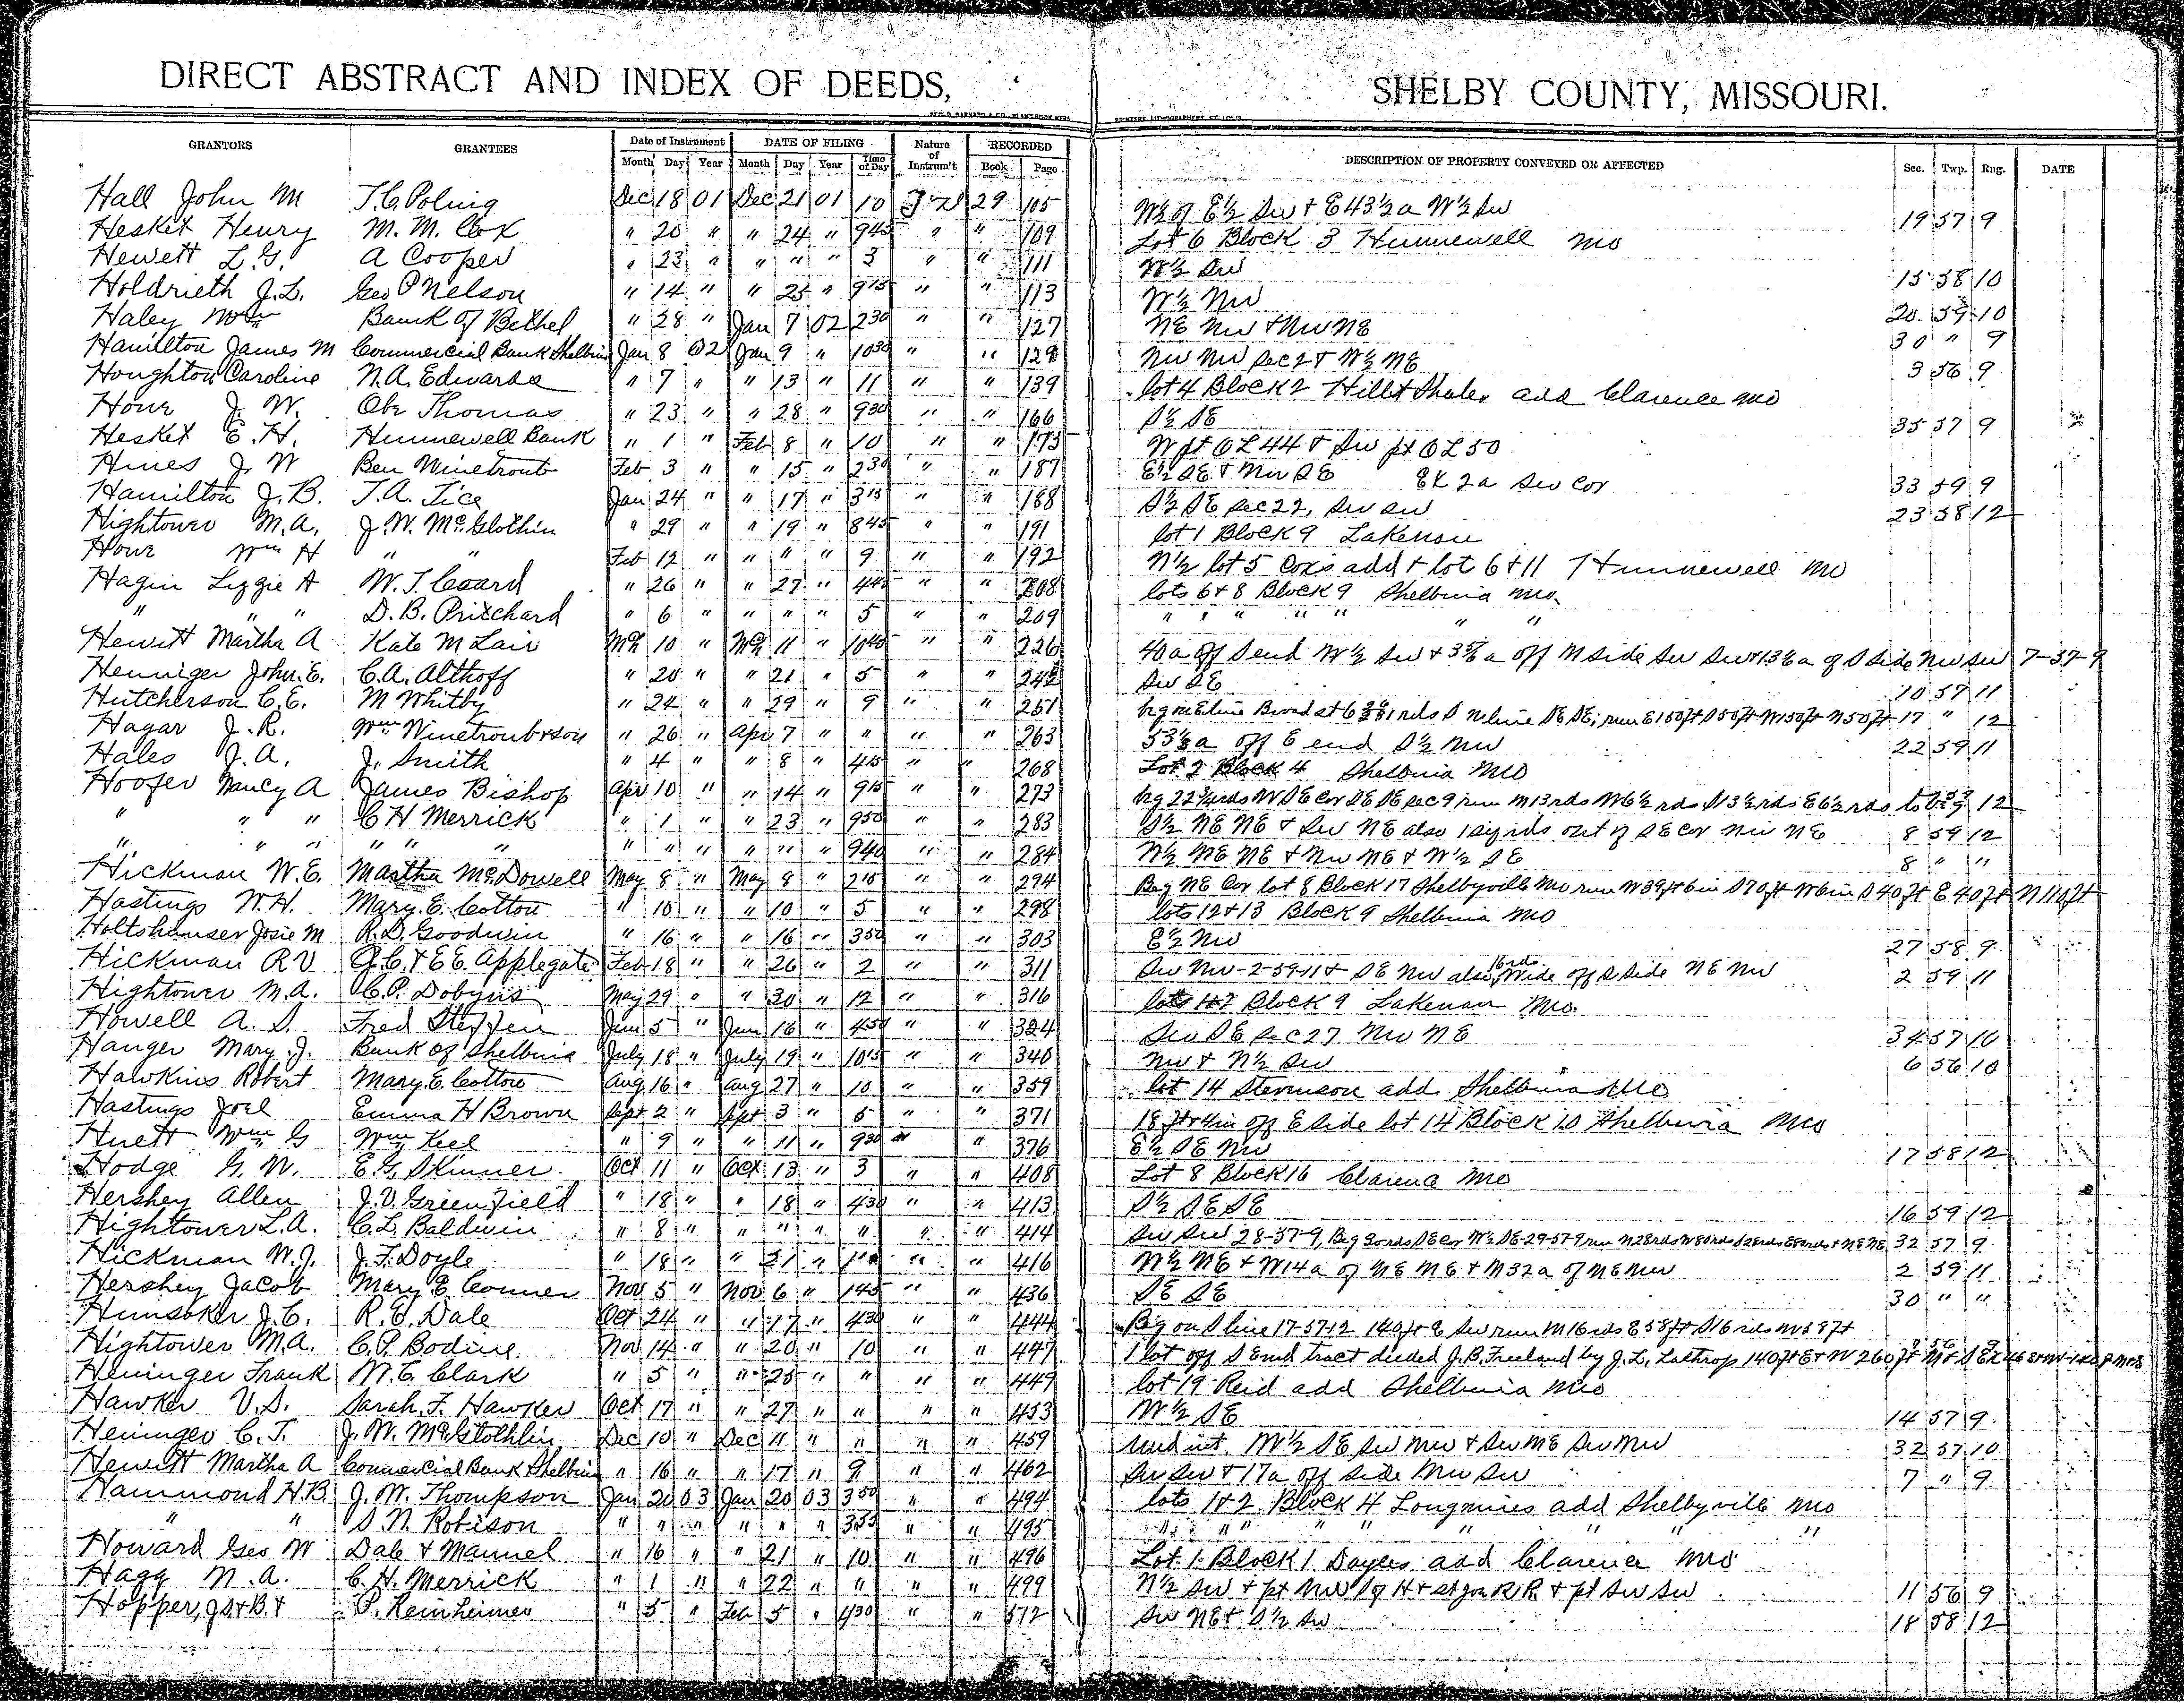 DIRECT ABSTRACT AND INDEX OF DEEDS, SHELBY COUNTY, MISSOURI.
GRANTORS GRANTEES Date of Instrument DATE OF FILING Nature of Instrum't RECORDED DESCRIPTION OF PROPERTY CONVEYED OR AFFECTED Sec. Twp. Rng. DATE
Month Day Year Month Day Year Time of Day Book Page
Hall John M T.C. Poling Dec 18 01 Dec 21 01 10 29 105 W½ of E½ Sw + E 43½ a W½ Sw 19 57 9
Hesket Henry M. M. Cox " 20 " " 24 " 9 45 " " 109 Lot 6 Block 3 Hunnewell Mo
Hewett L.G. A Cooper " 23 " " " " 3 " " 111 W½ Sw 15 58 10
Holdrieth J.L. Geo P Nelson " 14 " " 25 " 9 15 " " 113 W½ Nw 20 59 10
Haley Wm Bank of Bethel " 28 " Jan 7 02 2 30 " " 127 NE Nw + Nw NE 30 " 9
Hamilton James M Commercial Bank Shelbina Jan 8 02 Jan 9 " 10 30 " " 129 Nw Nw Sec 2 + W½ NE 3 56 9
Houghton Caroline N.A. Edwards " 7 " " 13 " 11 " " 139 lot 4 Block 2 Hill + Shaler add Clarence Mo
Howe J. W. Obe Thomas " 23 " " 28 " 9 30 " " 166 S½ SE 35 57 9
Hesket E. H. Hunnewell Bank " 1 " Feb 8 " 10 " " 175 W pt OL 44 + Sw pt OL 50
Hines J. W Ben Winetroub Feb 3 " " 15 " 2 30 " " 187 E½ SE + Nw SE Ex 2a Sw Cor 33 59 9
Hamilton J. B. T. A. Tice Jan 24 " " 17 " 3 15 " " 188 S½ SE Sec 22, Sw Sw 23 58 12
Hightower M.A. J. W. McGlothin " 29 " " 19 " 8 45 " " 191 lot 1 Block 9 Lakenan
Howe Wm H " " Feb 12 " " " " 9 " " 192 N½ lot 5 Coxs add + lot 6 + 11 Hunnewell Mo
Hagin Lizzie A W. T. Coard " 26 " " 27 " 4 45 " " 208 lots 6 + 8 Block 9 Shelbina Mo
" " " D. B. Prichard " 6 " " " " 5 " " 209 " " " " " " "
Hewitt Martha A Kate M Lair Mch 10 " Mch 11 " 10 40 " " 226 40 a off S end W½ Sw + off N side Sw Sw + of S Side Nw Sw 7-57-9
Henniger John E. C.A. Althoff " 20 " " 21 " 5 " " 242 Sw SE 10 57 11
Hutcherson C.E. M Whitby " 24 " " 29 " 9 " " 251 run E 150 ft S 50 ft W 150 ft N 50 ft 17 " 12
Hagar J. R. Wm Winetroub + son " 26 " Apr 7 " " " " 263 53⅓ a off E end S½ Nw 22 59 11
Hales J. A. J. Smith " 4 " " 8 " 4 15 " " 268 Lot 2 Block 4 Shelbina Mo
Hoofer Nancy A James Bishop Apr 10 " " 14 " 9 15 " " 273 SE Cor SE SE Sec 9 run N 13 rds W 6½ rds S 13½ rds E 6½ rds to 12
" " " C H Merrick " 1 " " 23 " 9 50 " " 283 S½ NE NE + Sw NE also 1 sq rds out of SE Cor Nw NE 8 59 12
" " " " " " " " " " " " 9 40 " " 284 W½ NE NE + Nw NE + W½ SE 8 " "
Hickman W.E. Martha McDowell May 8 " May 8 " 2 15 " " 294 Beg NE Cor lot 8 Block 17 Shelbyville Mo run W 39 ft 6 in S 70 ft W 6 in S 40 ft E 40 ft N 110 ft
Hastings W.H. Mary E. Cotton " 10 " " 10 " 5 " " 298 lots 12 + 13 Block 9 Shelbina Mo
Holtshauser Josie M R. D. Goodwin " 16 " " 16 " 3 50 " " 303 E½ Nw 27 58 9
Hickman R V J. C. + E E. Applegate Feb 18 " " 26 " 2 " " 311 Sw Nw - 2-59-11 + SE Nw also 16 rds wide off S side NE Nw 2 59 11
Hightower M.A. C. P. Dobyns May 29 " " 30 " 12 " " 316 lots 1 + 2 Block 9 Lakenan Mo.
Howell A. S. Fred Steffen Jun 5 " Jun 16 " 4 50 " " 324 Sw SE Sec 27 Nw NE 34 57 10
Hanger Mary J. Bank of Shelbina July 18 " July 19 " 10 15 " " 340 Nw + N½ Sw 6 56 10
Hawkins Robert Mary E. Cotton Aug 16 " Aug 27 " 10 " " 359 lot 14 Stevenson add Shelbina Mo
Hastings Joel Emma H Brown Sept 2 " Sept 3 " 5 " " 371 18 ft + 4 in off E Side lot 14 Block 10 Shelbina Mo
Huett Wm G Wm Keel " 9 " " 11 " 9 30 " " 376 E½ SE Nw 17 58 12
Hodge G. W. E. G. Skinner Oct 11 " Oct 13 " 3 " " 408 Lot 8 Block 16 Clarence Mo
Hershey Allen J. V. Greenfield " 18 " " 18 " 4 30 " " 413 S½ SE SE 16 59 12
Hightower L.A. C. L. Baldwin " 8 " " " " " " " 414 Sw Sw 28-57-9, Beg SE Cor W½ SE 29-57-9 run N 28 rds W 80 rds S 28 rds E 80 rds + NE NE 32 57 9
Hickman W. J. J. F. Doyle " 18 " " 21 " " " 416 W½ NE + W 14 a of NE NE + N 32 a of NE Nw 2 59 11
Hershey Jacob Mary E Conner Nov 5 " Nov 6 " 1 45 " " 436 SE SE 30 " "
Hunsoker J. C. R. E. Dale Oct 24 " " 17 " 4 30 " " 444 Beg on S line 17-57-12 140 ft E Sw run N 16 rds E 58 ft S 16 rds W 58 ft
Hightower M.A. C. P. Bodine Nov 14 " " 20 " 10 " " 447 1 lot off S end tract deeded J. B. Freeland by J. L. Lathrop 140 ft E + W 260 ft N + S
Heninger Frank W. E. Clark " 5 " " 25 " " " " 449 lot 19 Reid add Shelbina Mo
Hawker V. S. Sarah F. Hawker Oct 17 " " 27 " " " " 453 W½ SE 14 57 9
Heninger C. T. J. W. McGlothlin Dec 10 " Dec 11 " " " " 459 und int. W½ SE, Sw Nw + Sw NE Sw Nw 32 57 10
Hewitt Martha A Commercial Bank Shelbina " 16 " " 17 " 9 " " 462 Sw Sw + 17 a off Side Nw Sw 7 " 9
Hammond H.B J. W. Thompson Jan 20 03 Jan 20 03 3 50 " " 494 lots 1 + 2 Block 4 Longmires add Shelbyville Mo
" " S. N. Robison " " " " " " 3 55 " " 495 " " " " " " " " "
Howard Geo W Dale + Mannel " 16 " " 21 " 10 " " 496 Lot 1 Block 1 Dayles add Clarence Mo
Hagg N. A. C. H. Merrick " 1 " " 22 " " " " 499 N½ Sw + pt Nw S of H + St Joe R.R + pt Sw Sw 11 56 9
Hopper, J S + B. + P. Reinheimer " 5 " Feb 5 " 4 30 " " 512 Sw NE + S½ Sw 18 58 12